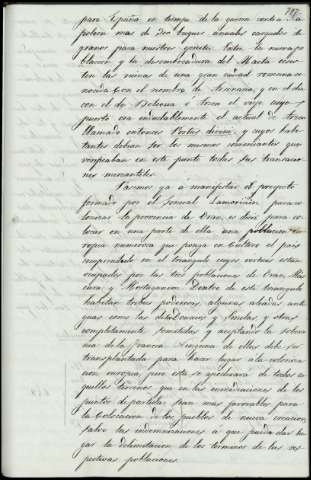 787
para España en tiempo de la guerra contra Na
poleon mas de 300 buques anuales cargados de
granos para nuestros
blacion y la desembocadura del Macta exis
ten las ruinas de una gran ciudad romana co
nocida con el nombre de Arsenaria, y en el dia
con el de Betioua ó Arzeu el viejo cuyo
puerto era indudablemente el actual de Arzeu
llamado entonces Portus divini y cuyos habi
tantes debian ser los mismos comerciantes que
verificaban en este punto todas sus transaccio
nes mercantiles.
Pasemos ya á manifestar el proyecto
formado por el General Lamoricière para co
lonizar la provincia de Oran, es decir para co
locar en una parte de ella una poblacion eu
ropea numerosa que ponga en cultivo el pais
comprendido en el triangulo cuyos vértices estan
ocupados por las tres poblaciones de Oran, Mas
cara y Mostaganem. Dentro de este triangulo
habitan tribus poderosas, algunas aliadas anti
guas como las de los Douairs y Smelas y otras
completamente sometidas y aceptando la sobera
nia de la Francia. Ninguna de ellas debe ser
transplantada para hacer lugar á la coloniza
cion europea, pero esta se apoderará de todos a
quellos terrenos que en las inmediaciones de los
puntos de partida sean mas favorables para
la colocacion de los pueblos de nueva creacion,
salvo las indemnizaciones á que pueda dar lu
gar la delimitacion de los términos de las res
pectivas poblaciones.